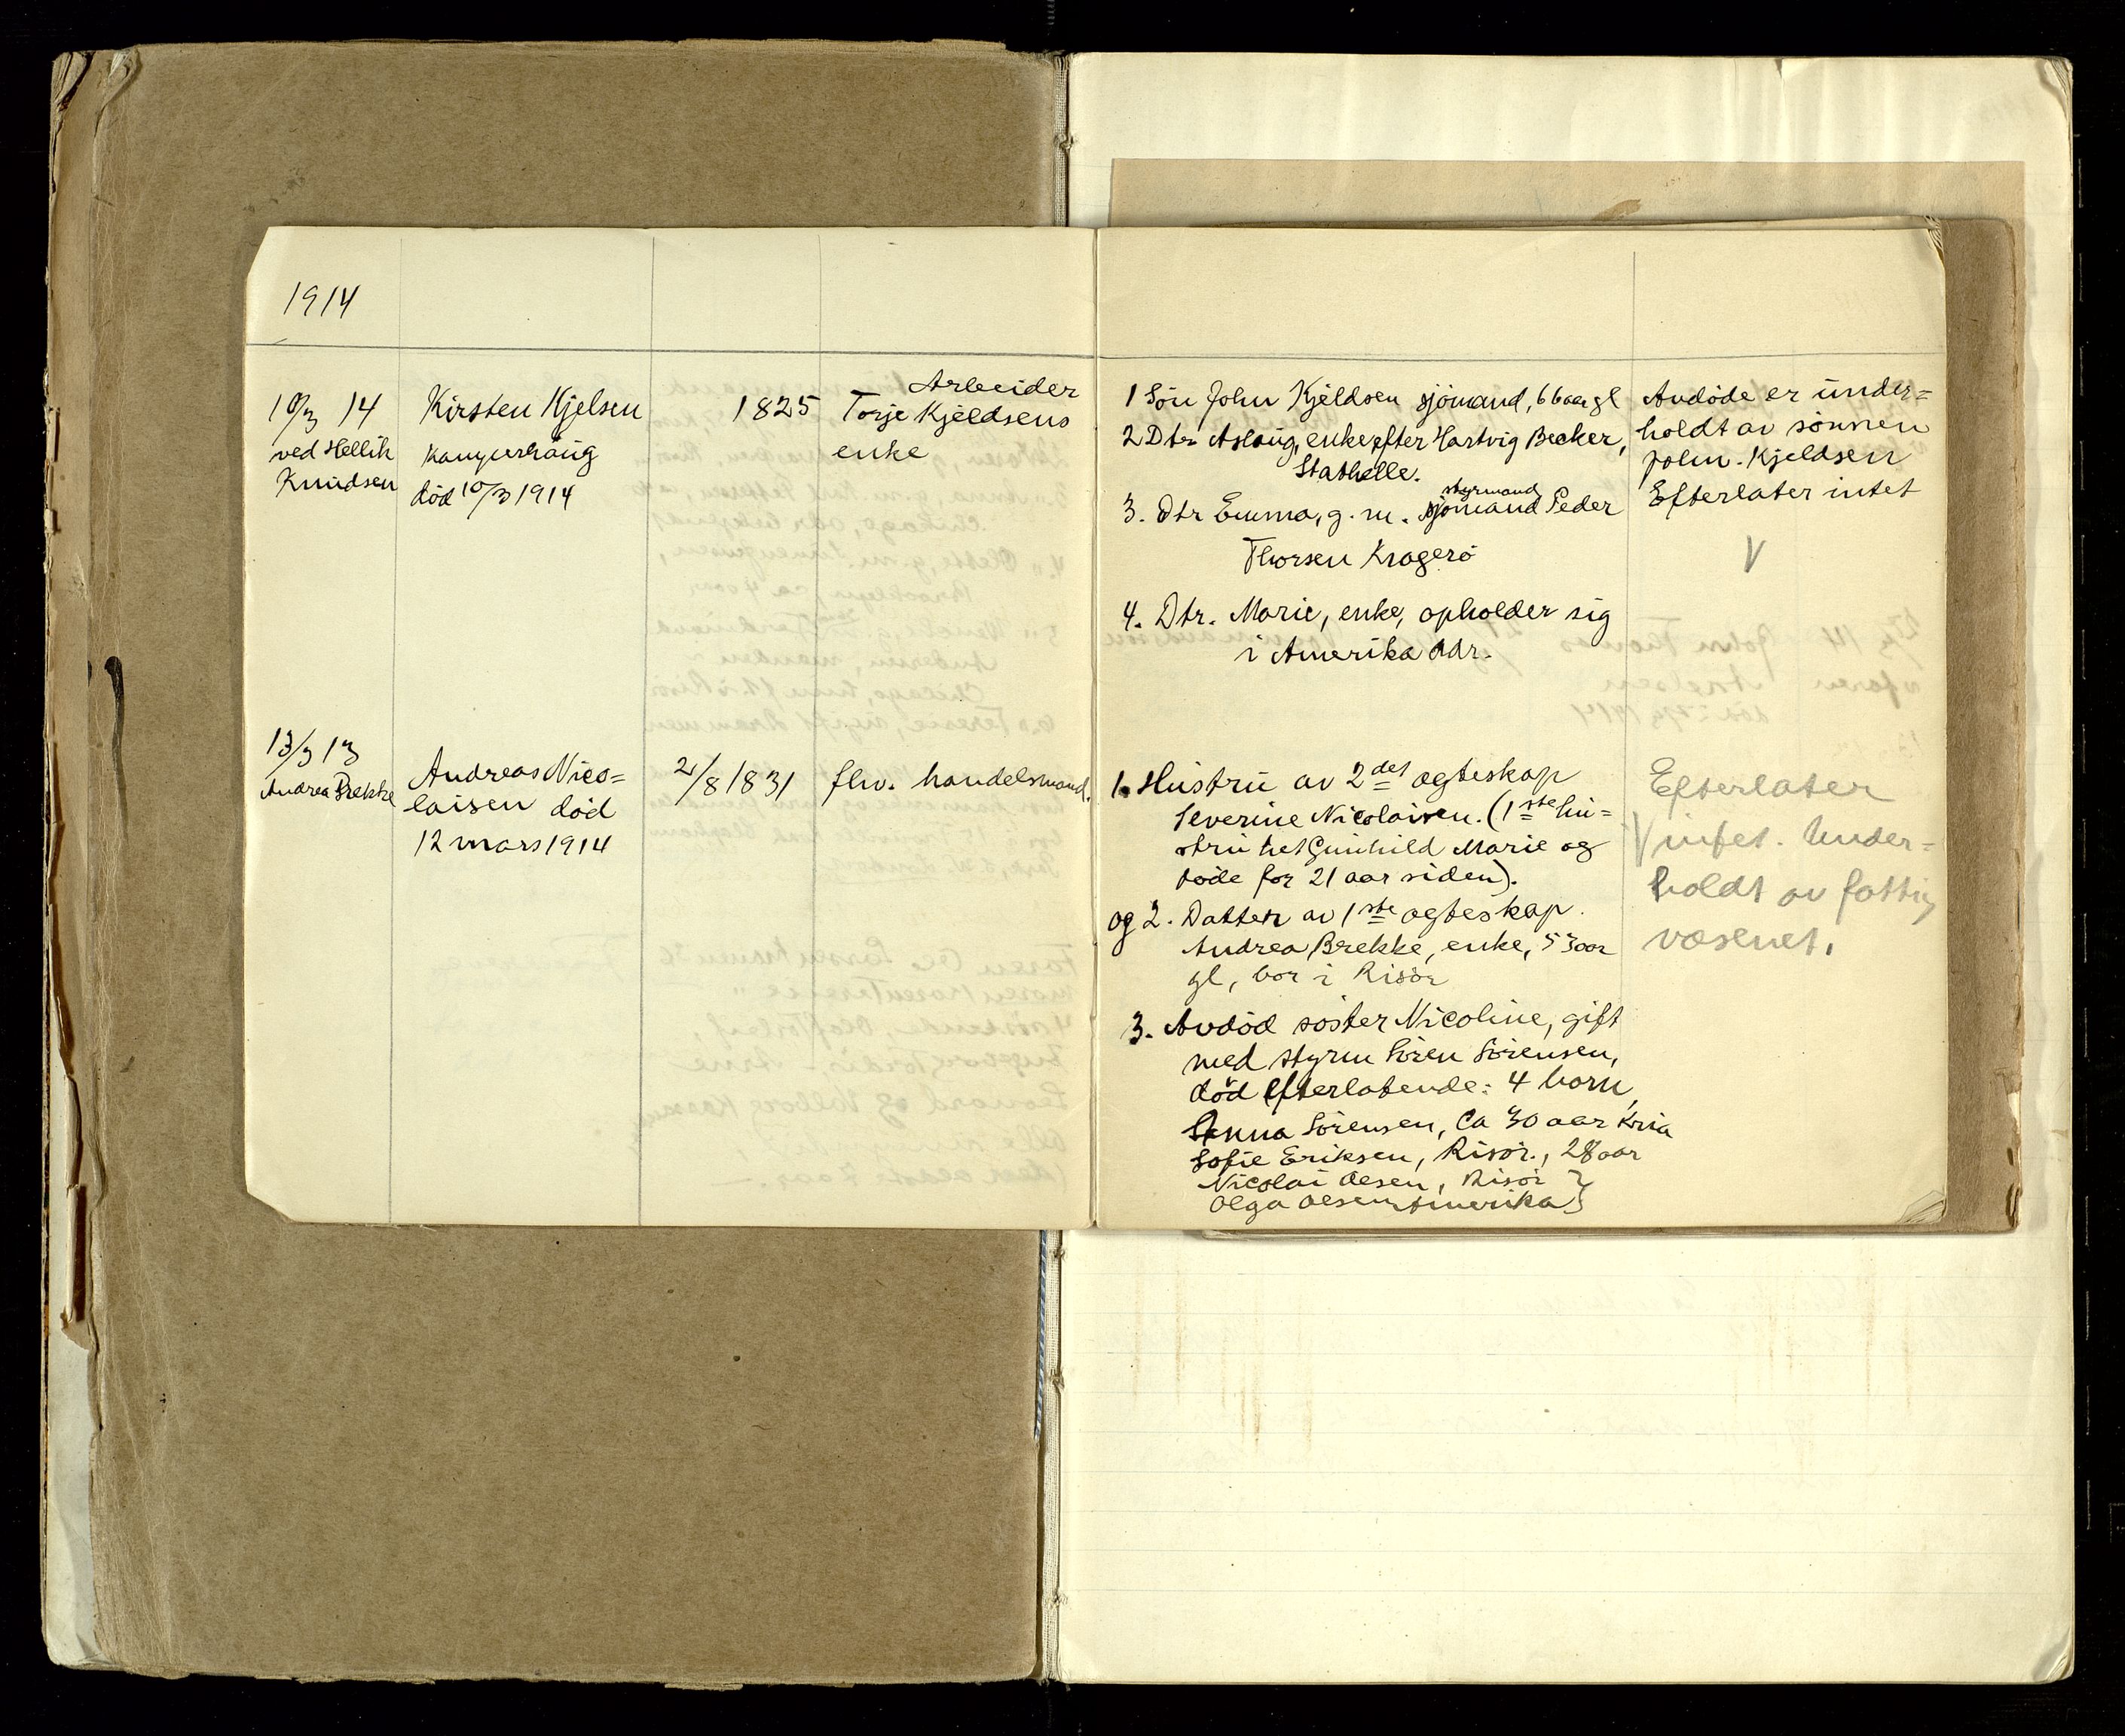 1914
10/3 14
ved Hellik
Knudsen
Kirsten Kjelsen
død 10/3 1914
1825
Arbeider
Torje Kjeldsens
enke
1 Sön John Kjeldsen sjömand, 66 aar gl
2 Dtr Aslaug, enke efter Hartvig Becker,
Stathelle.
styrmand
3. Dtr Emma, g. m. sjömand Peder
Thorsen Kragerö
4. Dtr. Marie, enke, opholder sig
i Amerika
Avdöde er under=
holdt av sönnen
John Kjeldsen
Efterlater intet
V
13/3 13
Andrea Brekke
Andreas Nico=
laisen död
12 mars 1914
2/8 1831
fhv. handelsmand.
1. Hustru av 2det egteskap
Severine Nicolaisen. (1ste hu=
stru het Gunhild Marie og
döde for 21 aar siden).
og 2. Datter av 1ste egteskap
Andrea Brekke, enke, 53 aar
gl, bor i Risör
3. Avdöd söster Nicoline, gift
med styrm Sören Sörensen,
död Efterlatende: 4 born,
Anna Sörensen, Ca 30 aar Kria
Sofie Eriksen, Risör., 28 aar
Nicolai Olsen, Risör }
Olga Olsen Amerika }
Efterlater
V intet. Under=
holdt av fattig
væsenet.